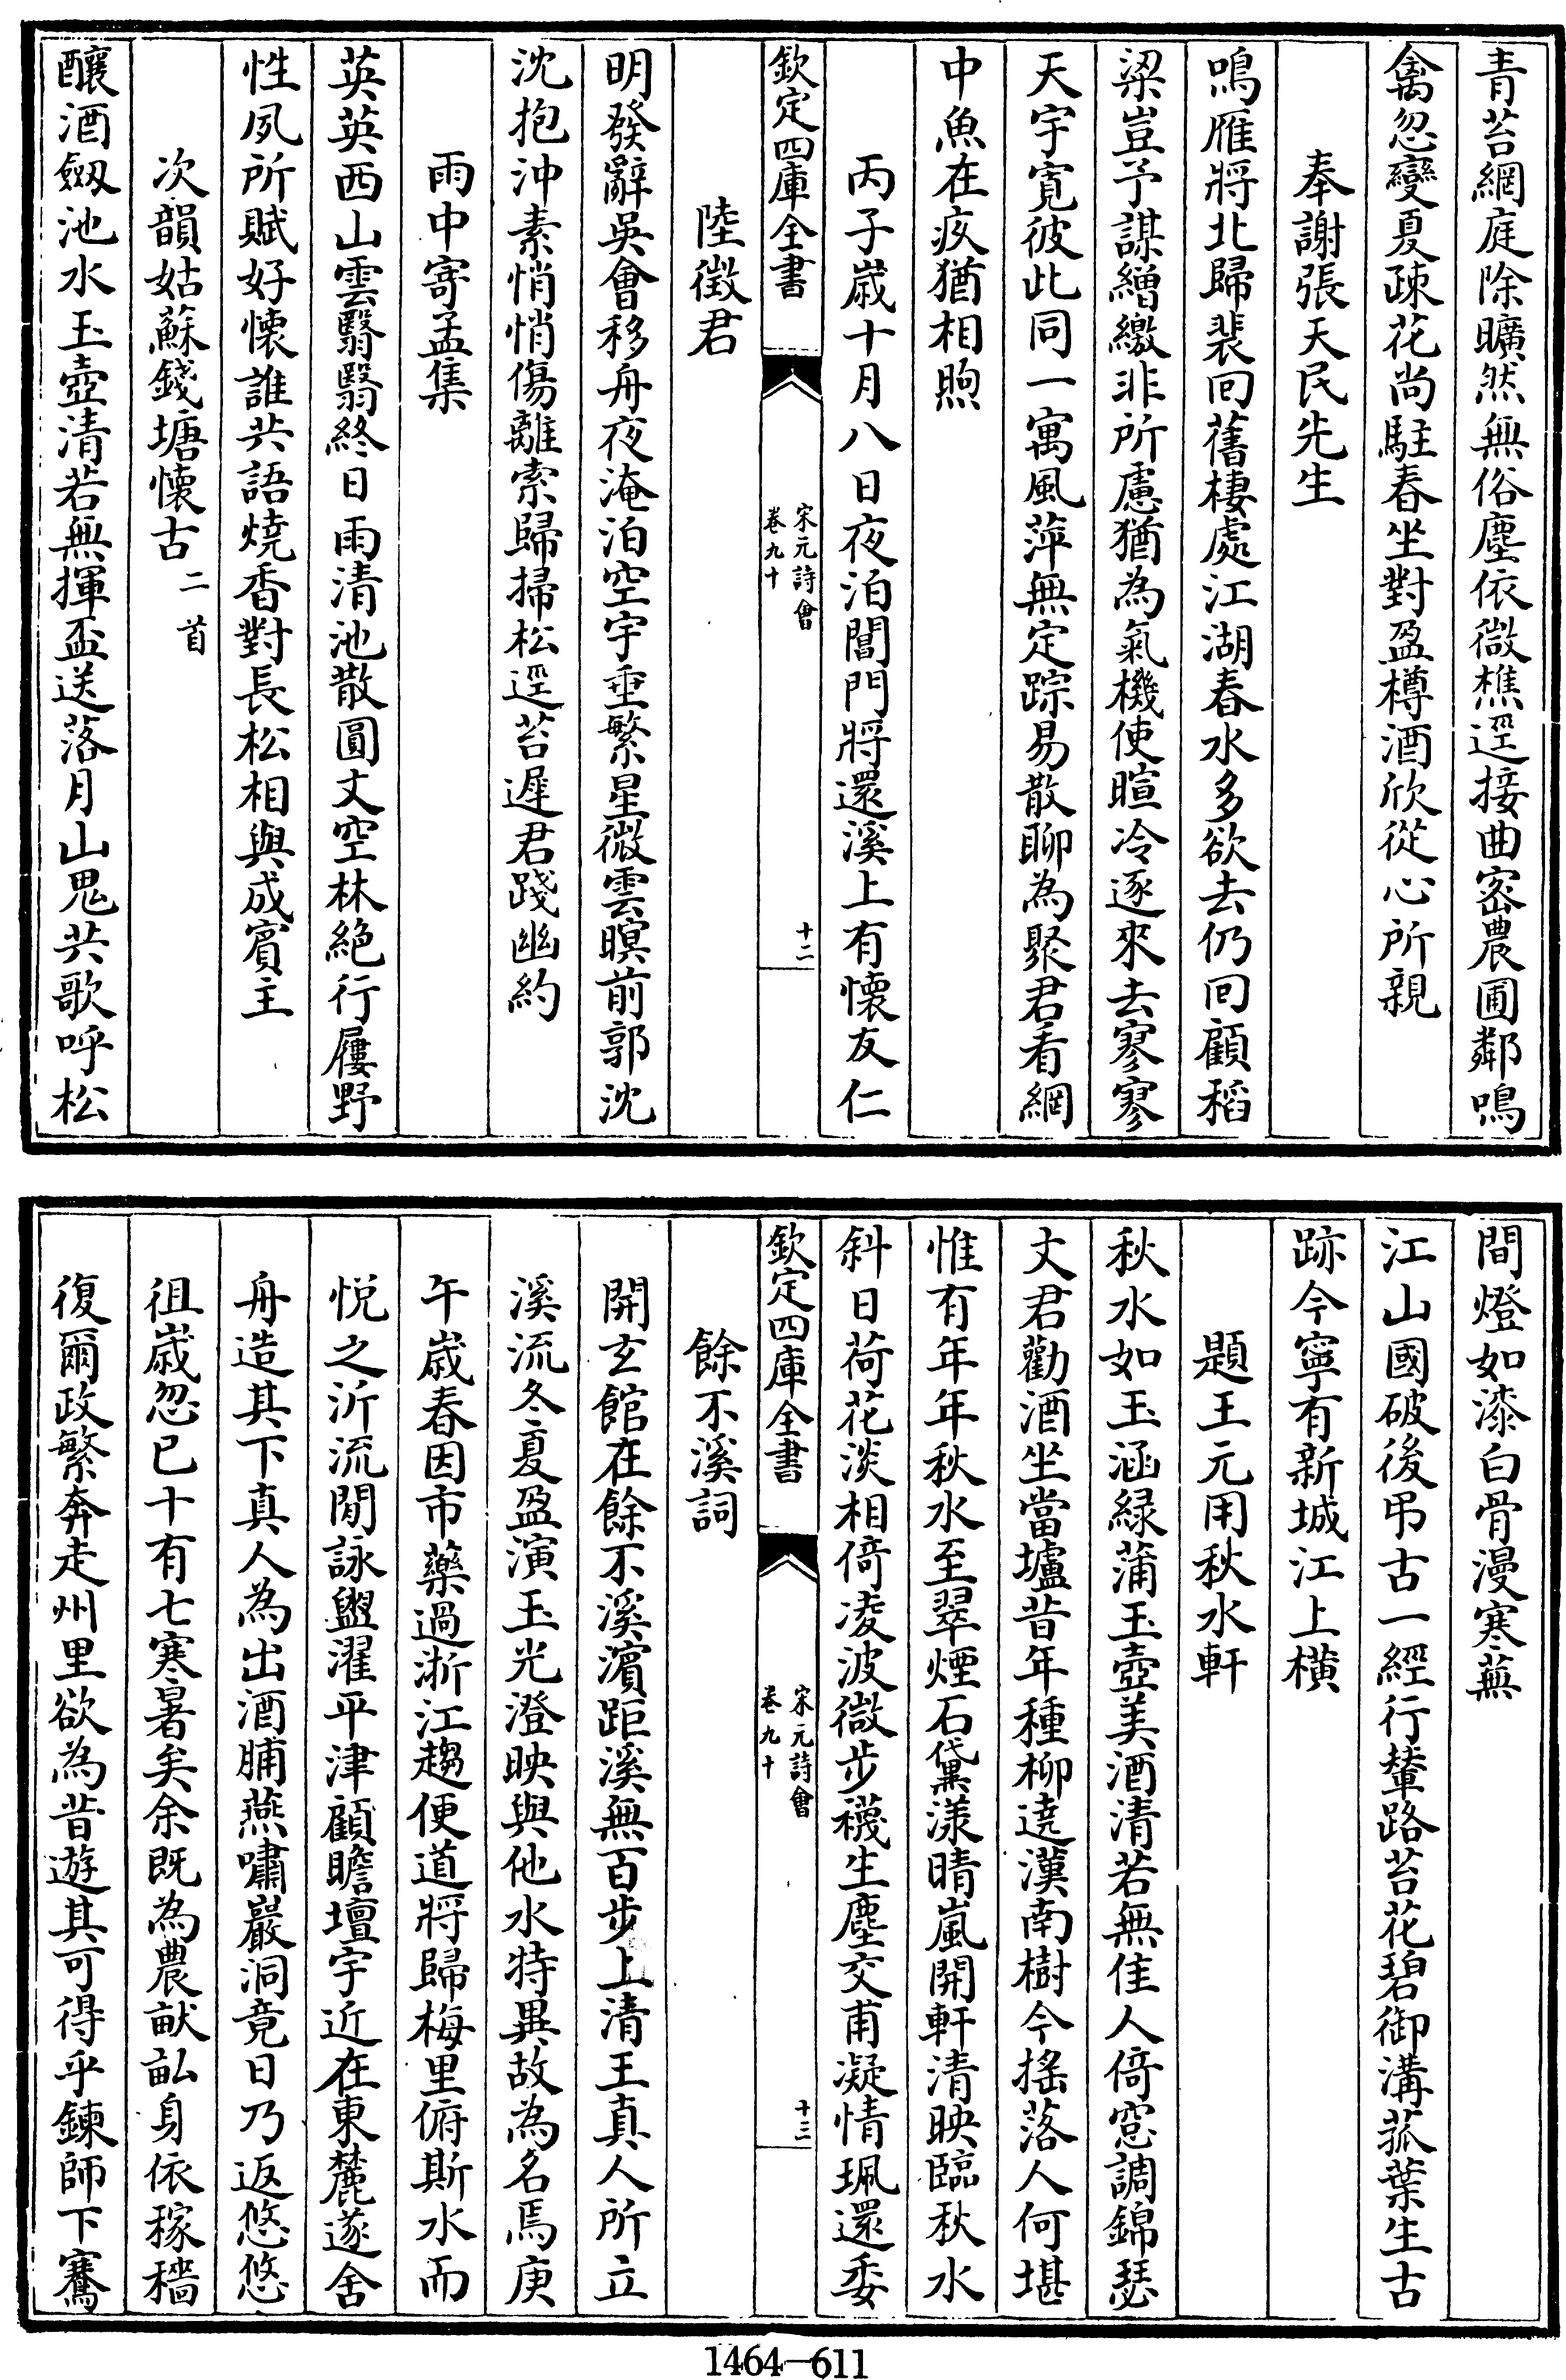 青苔網庭除曠然無俗塵依微樵逕接曲密農圃鄰鳴
禽忽變夏疎花尚駐春坐對盈樽酒欣從心所親
奉謝張天民先生
鳴雁將北歸裴回舊棲處江湖春水多欲去仍回顧稻
粱豈予謀繒繳非所慮猶為氣機使暄冷逐來去寥寥
天宇寬彼此同一寓風萍無定踪易散聊為聚君看網
中魚在疚猶相煦
丙子歲十月八日夜泊閶門將還溪上有懷友仁
欽定四庫全書
宋元詩會
卷九十
十二
陸徵君
明發辭吳會移舟夜淹泊空宇垂繁星微雲暝前郭沈
沈抱沖素悄悄傷離索歸掃松逕苔遲君踐幽約
雨中寄孟集
英英西山雲翳翳終日雨清池散圓文空林絶行屨野
性夙所賦好懷誰共語燒香對長松相與成賓主
次韻姑蘇錢塘懷古二首
釀酒劔池水玉壺清若無揮盃送落月山鬼共歌呼松
間燈如漆白骨漫寒蕪
江山國破後弔古一經行輦路苔花碧御溝菰葉生古
跡今寧有新城江上橫
題王元用秋水軒
秋水如玉涵緑蒲玉壺美酒清若無佳人倚窓調錦瑟
丈君勸酒坐當壚昔年種柳遶漢南樹今搖落人何堪
惟有年年秋水至翠煙石黛漾晴嵐開軒清映臨秋水
斜日荷花淡相倚凌波微步襪生塵交甫凝情珮還委
欽定四庫全書
宋元詩會
卷九十
十三
餘不溪詞
開玄館在餘不溪濵距溪無百步上清王真人所立
溪流冬夏盈演玉光澄映與他水特異故為名焉庚
午歲春因市藥過浙江趨便道將歸梅里俯斯水而
悅之沂流閒詠盥濯平津顧瞻壇宇近在東麓遂舍
舟造其下真人為出酒脯燕嘯巖洞竟日乃返悠悠
徂歲忽已十有七寒暑矣余既為農畎畆身依稼穡
復爾政繁奔走州里欲為昔遊其可得乎鍊師下騫
1464—611